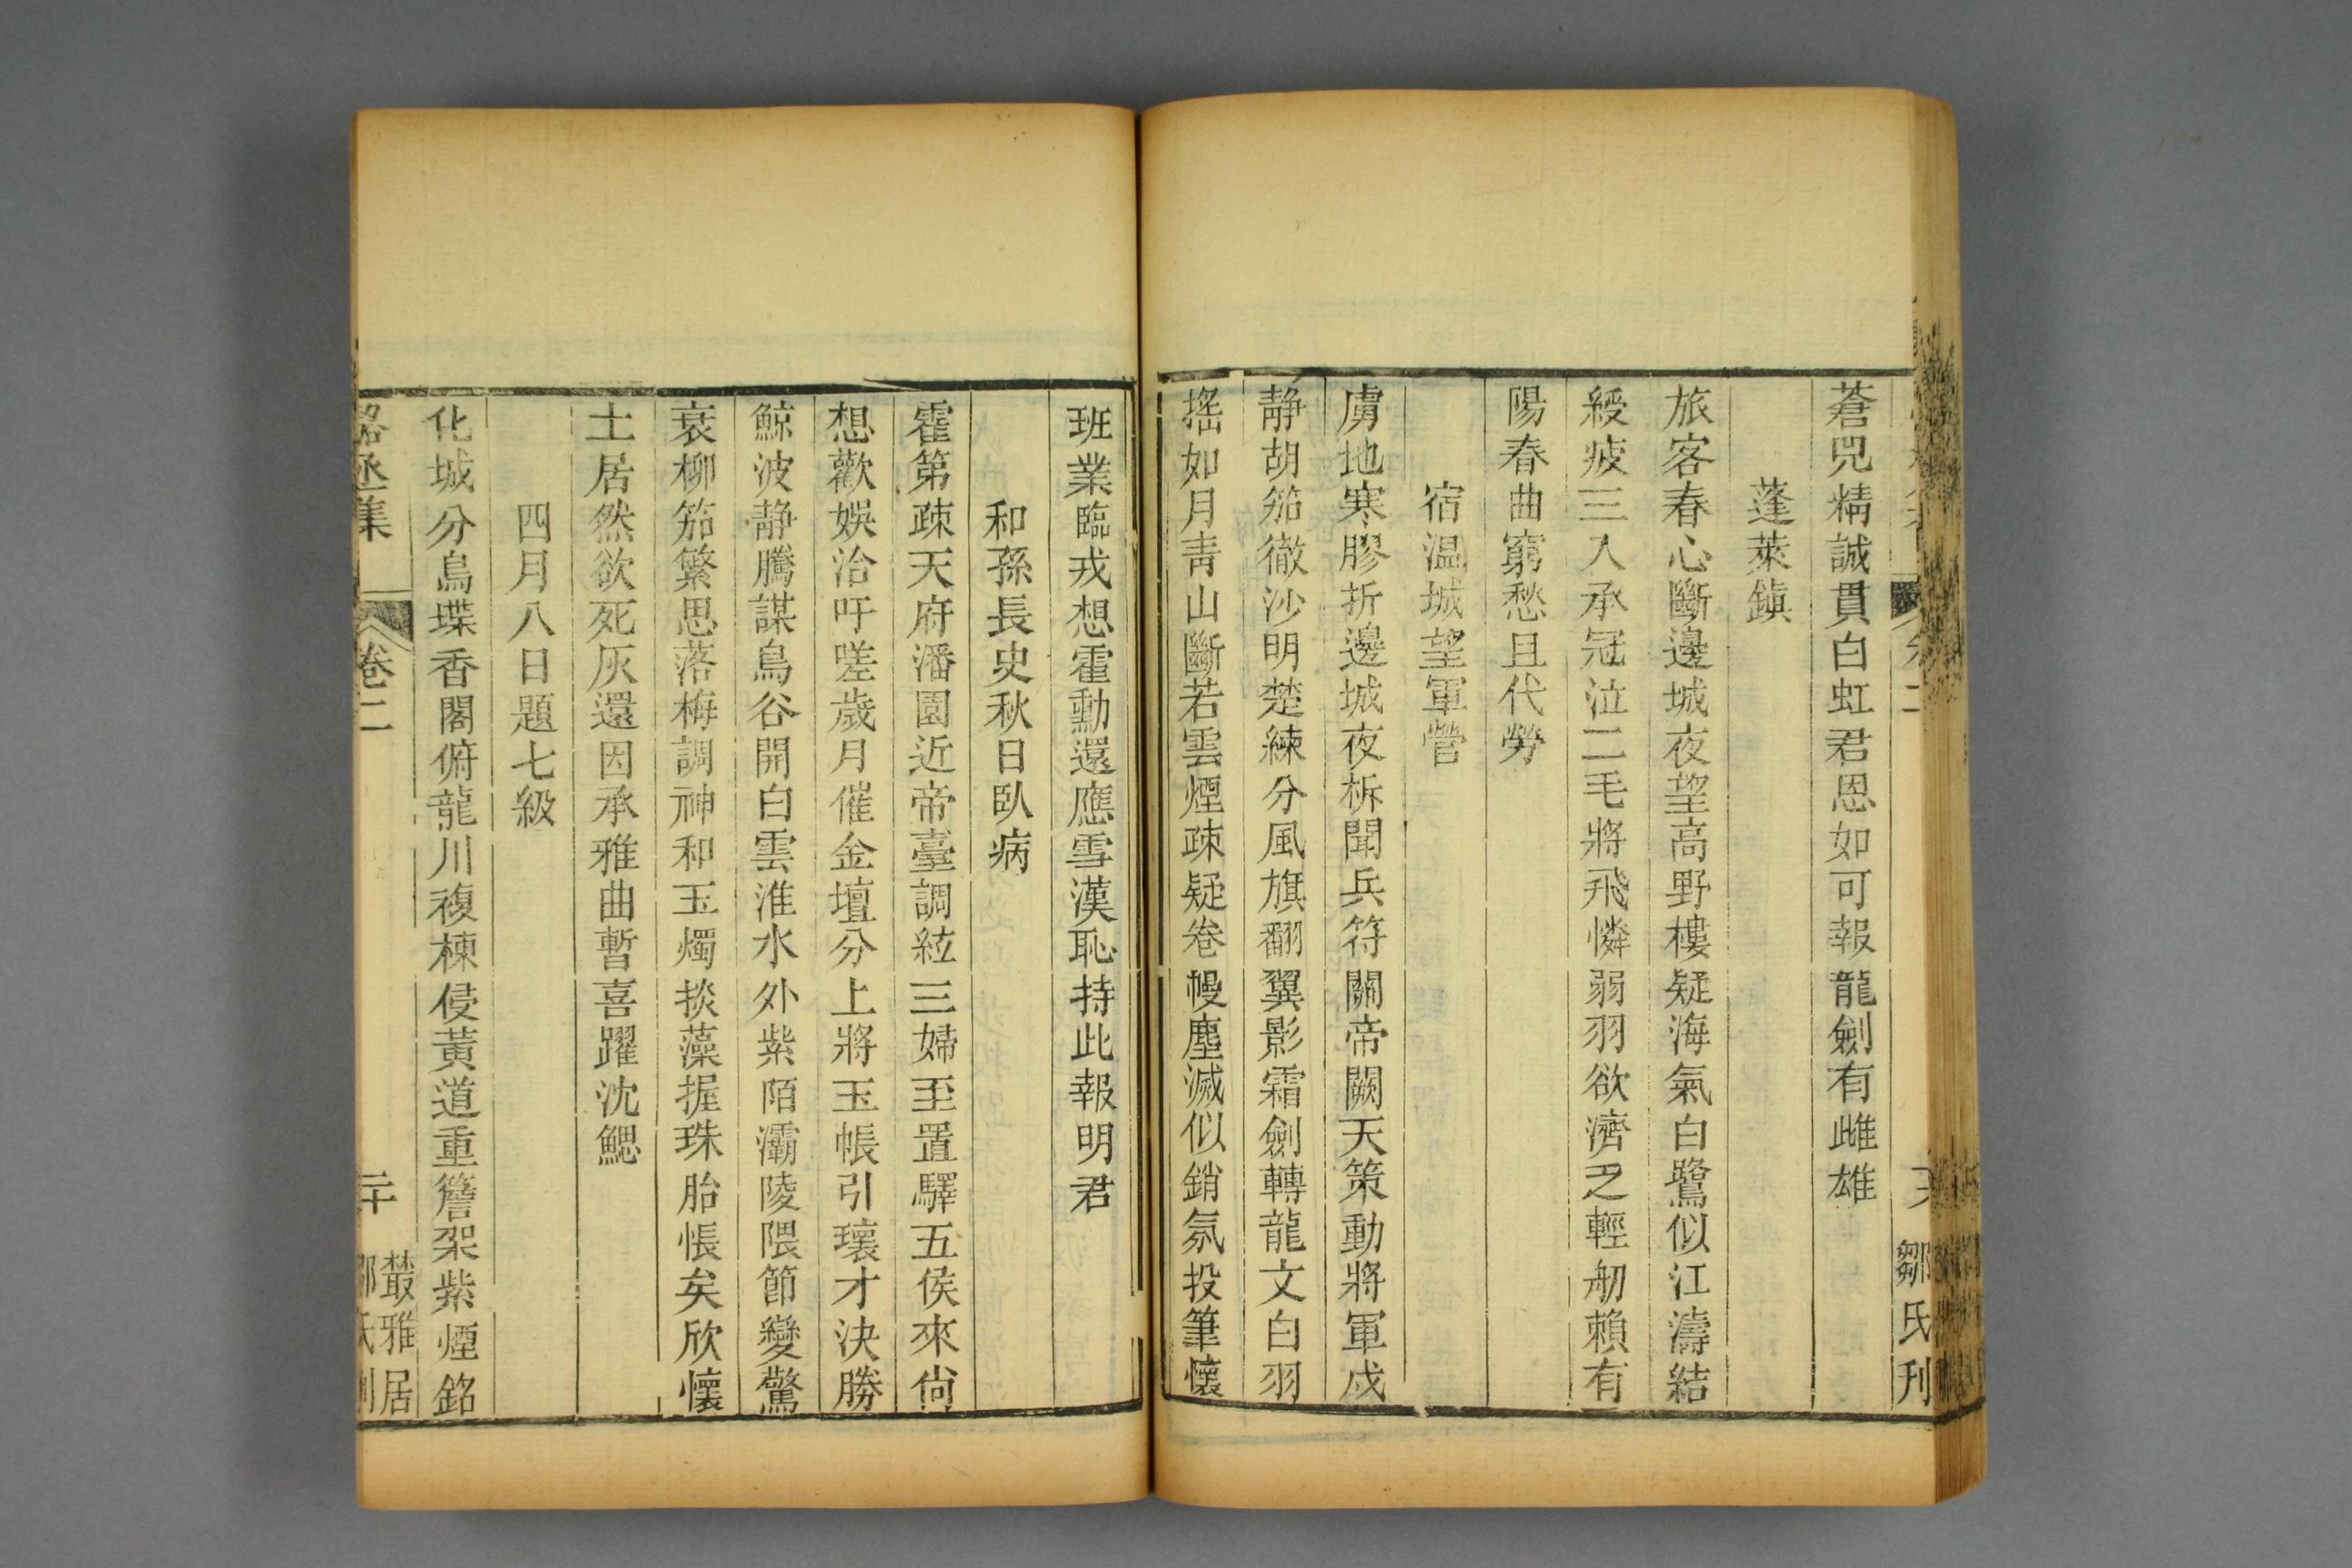 蒼兕精誠貫白虹君恩如可報龍劍有雌雄
蓬萊鎮
旅客春心斷邊城夜望高野樓疑海氣白鷺似江濤結
綬疲三入承冠泣二毛將飛憐弱羽欲濟乏輕舠賴有
陽春曲窮愁且代勞
宿温城望軍營
虜地寒膠折邊城夜柝聞兵符關帝闕天策動將軍戍
靜胡笳徹沙明楚練分風旗翻翼影霜劍轉龍文白羽
搖如月靑山斷若雲煙疎疑卷幔塵滅似銷氛投筆懷
卷二
鄒氏刋
班業臨戎想霍勳還應雪漢恥持此報明君
和孫長史秋日臥病
霍第疎天府潘園近帝臺調絃三婦至置驛五侯來尙
想歡娛洽吁嗟歲月催金壇分上將玉帳引瓌才決勝
鯨波靜騰謀鳥谷開白雲淮水外紫陌灞陵隈節變驚
衰柳笳繁思落梅調神和玉燭掞藻握珠胎悵矣欣懷
土居然欲死灰還因承雅曲暫喜躍沈鰓
四月八日題七級
化城分鳥堞香閣俯龍川複棟侵黃道重簷架紫煙銘
駱丞集
卷二
二十
叢雅居
鄒氏刋